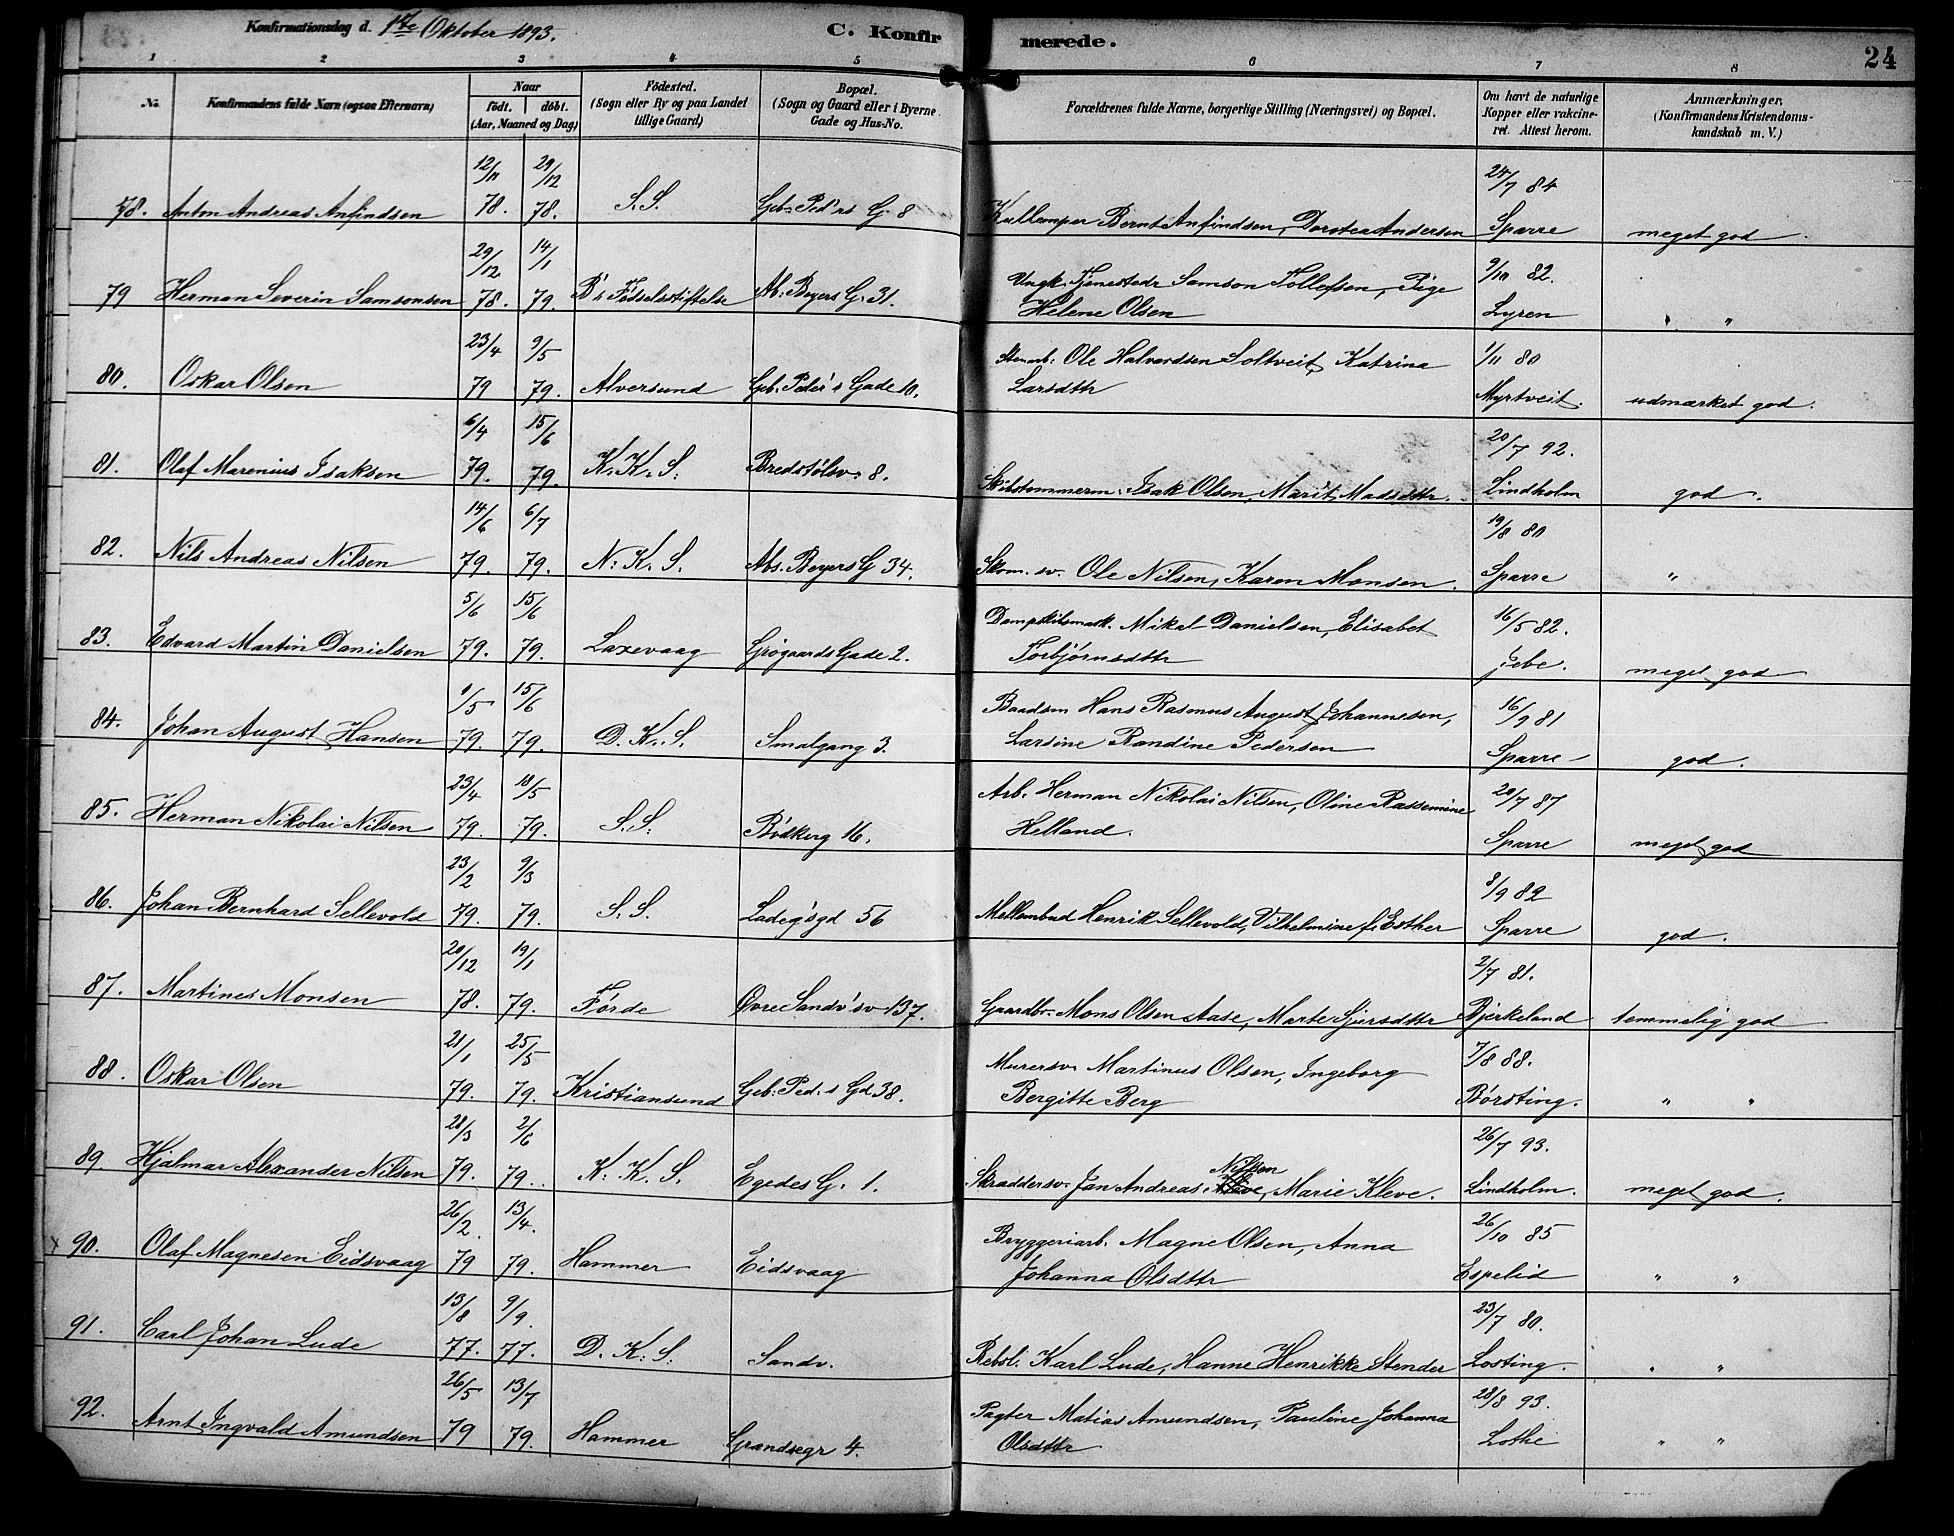 Konfirmationsdag d. 1ste Oktober 1893. C. Konfirmerede. 24
1 2 3 4 5 6 7 8
No. Konfirmandens fulde Navn (ogsaa Efternavn) Naar født. døbt. (Aar, Maaned og Dag) Fødested. (Sogn eller By og paa Landet tillige Gaard) Bopæl. (Sogn og Gaard eller i Byerne Gade og Hus-No. Forældrenes fulde Navne, borgerlige Stilling (Næringsvei) og Bopæl. Om havt de naturlige Kopper eller vakcineret. Attest herom. Anmærkninger. (Konfirmandens Kristendomskundskab m. V.)
12/11 29/12 24/7 84
78. Anton Andreas Anfindsen 78. 78. S.S. Geb. Ped's G. 8 Bernt Anfindsen, Dorotea Andersen Sparre meget god.
29/12 14/1 9/10 82.
79 Herman Severin Samsonsen 78. 79. B's Fødselsstiftelse Ab. Beyers G. 31. Ungk. Tjenestedr Samson Tollefsen, Pige
Helene Olsen Lyren " "
23/4 9/5 1/11 80
80. Oskar Olsen 79 79. Alversund Geb. Peder's Gade 10. Stenarb. Ole Halvardsen Soltveit, Katrina
Larsdttr Myrtveit. udmærket god.
6/4 15/6 20/7 92.
81. Olaf Marenius Isaksen 79. 79. K. K. S. Bredstølsv. 8. Skibstømmerm. Isak Olsen, Marit Madsdttr. Lindholm god.
14/6 6/7 19/8 80
82. Nils Andreas Nilsen 79. 79. N. K. S. Abs. Beyers G 34. Skom. sv. Ole Nilsen, Karen Monsen. Sparre "
5/6 15/6 16/5 82.
83. Edvard Martin Danielsen 79. 79. Laxevaag Grøgaards Gade 2. Dampskibsmask. Mikal Danielsen, Elisabet
Torbjørnsdttr Jebe. meget god
1/5 15/6 16/9 81
84. Johan August Hansen 79. 79. D. K. S. Smalgang 3. Baadsm Hans Rasmus August Johannesen,
Larsine Randine Pedersen Sparre god.
23/4 18/5 20/7 87
85. Herman Nikolai Nilsen 79. 79. S.S. Bødkerg 16. Arb. Herman Nikolai Nilsen, Oline Rassemine
Helland. Sparre meget god
23/2 9/3 8/9 82
86. Johan Bernhard Sellevold 79. 79. S.S. Ladeg'sgd 56 Mellembud Henrik Sellevold, Vilhelmine f. Esther Sparre god.
20/12 19/1 2/7 81.
87. Martines Monsen 78. 79. Førde Øvre Sandv'sv 137. Gaardbr. Mons Olsen Aase, Marte Sjursdttr Bjerkeland temmelig god
21/1 25/5 7/8 88.
88. Oskar Olsen 79. 79. Kristiansund Geb. Ped.s Gd 38. Murersv. Martinus Olsen, Ingeborg
Bergitte Berg Børsting. " "
28/3 2/6 26/7 93.
89. Hjalmar Alexander Nilsen 79. 79. K. K. S. Egedes G. 1. Skraddersv. Jan Andreas Nilsen, Marie Kleve. Lindholm. meget god.
26/2. 13/4. 26/10 85
x 90. Olaf Magnesen Eidsvaag 79 79. Hammer Eidsvaag Bryggeriarb. Magne Olsen, Anna
Johanna Olsdttr Espelid " "
13/8 9/9. 23/7 80.
91. Carl Johan Lude 77. 77. D. K. S. Sandv. Rebsl. Karl Lude, Hanne Henrikke Stender Losting. " "
26/5 13/7 28/8 93.
92. Arnt Ingvald Amundsen 79 79. Hammer Grandsegr 4. Pagter Matias Amundsen, Pauline Johanna
Olsdttr Lothe " "